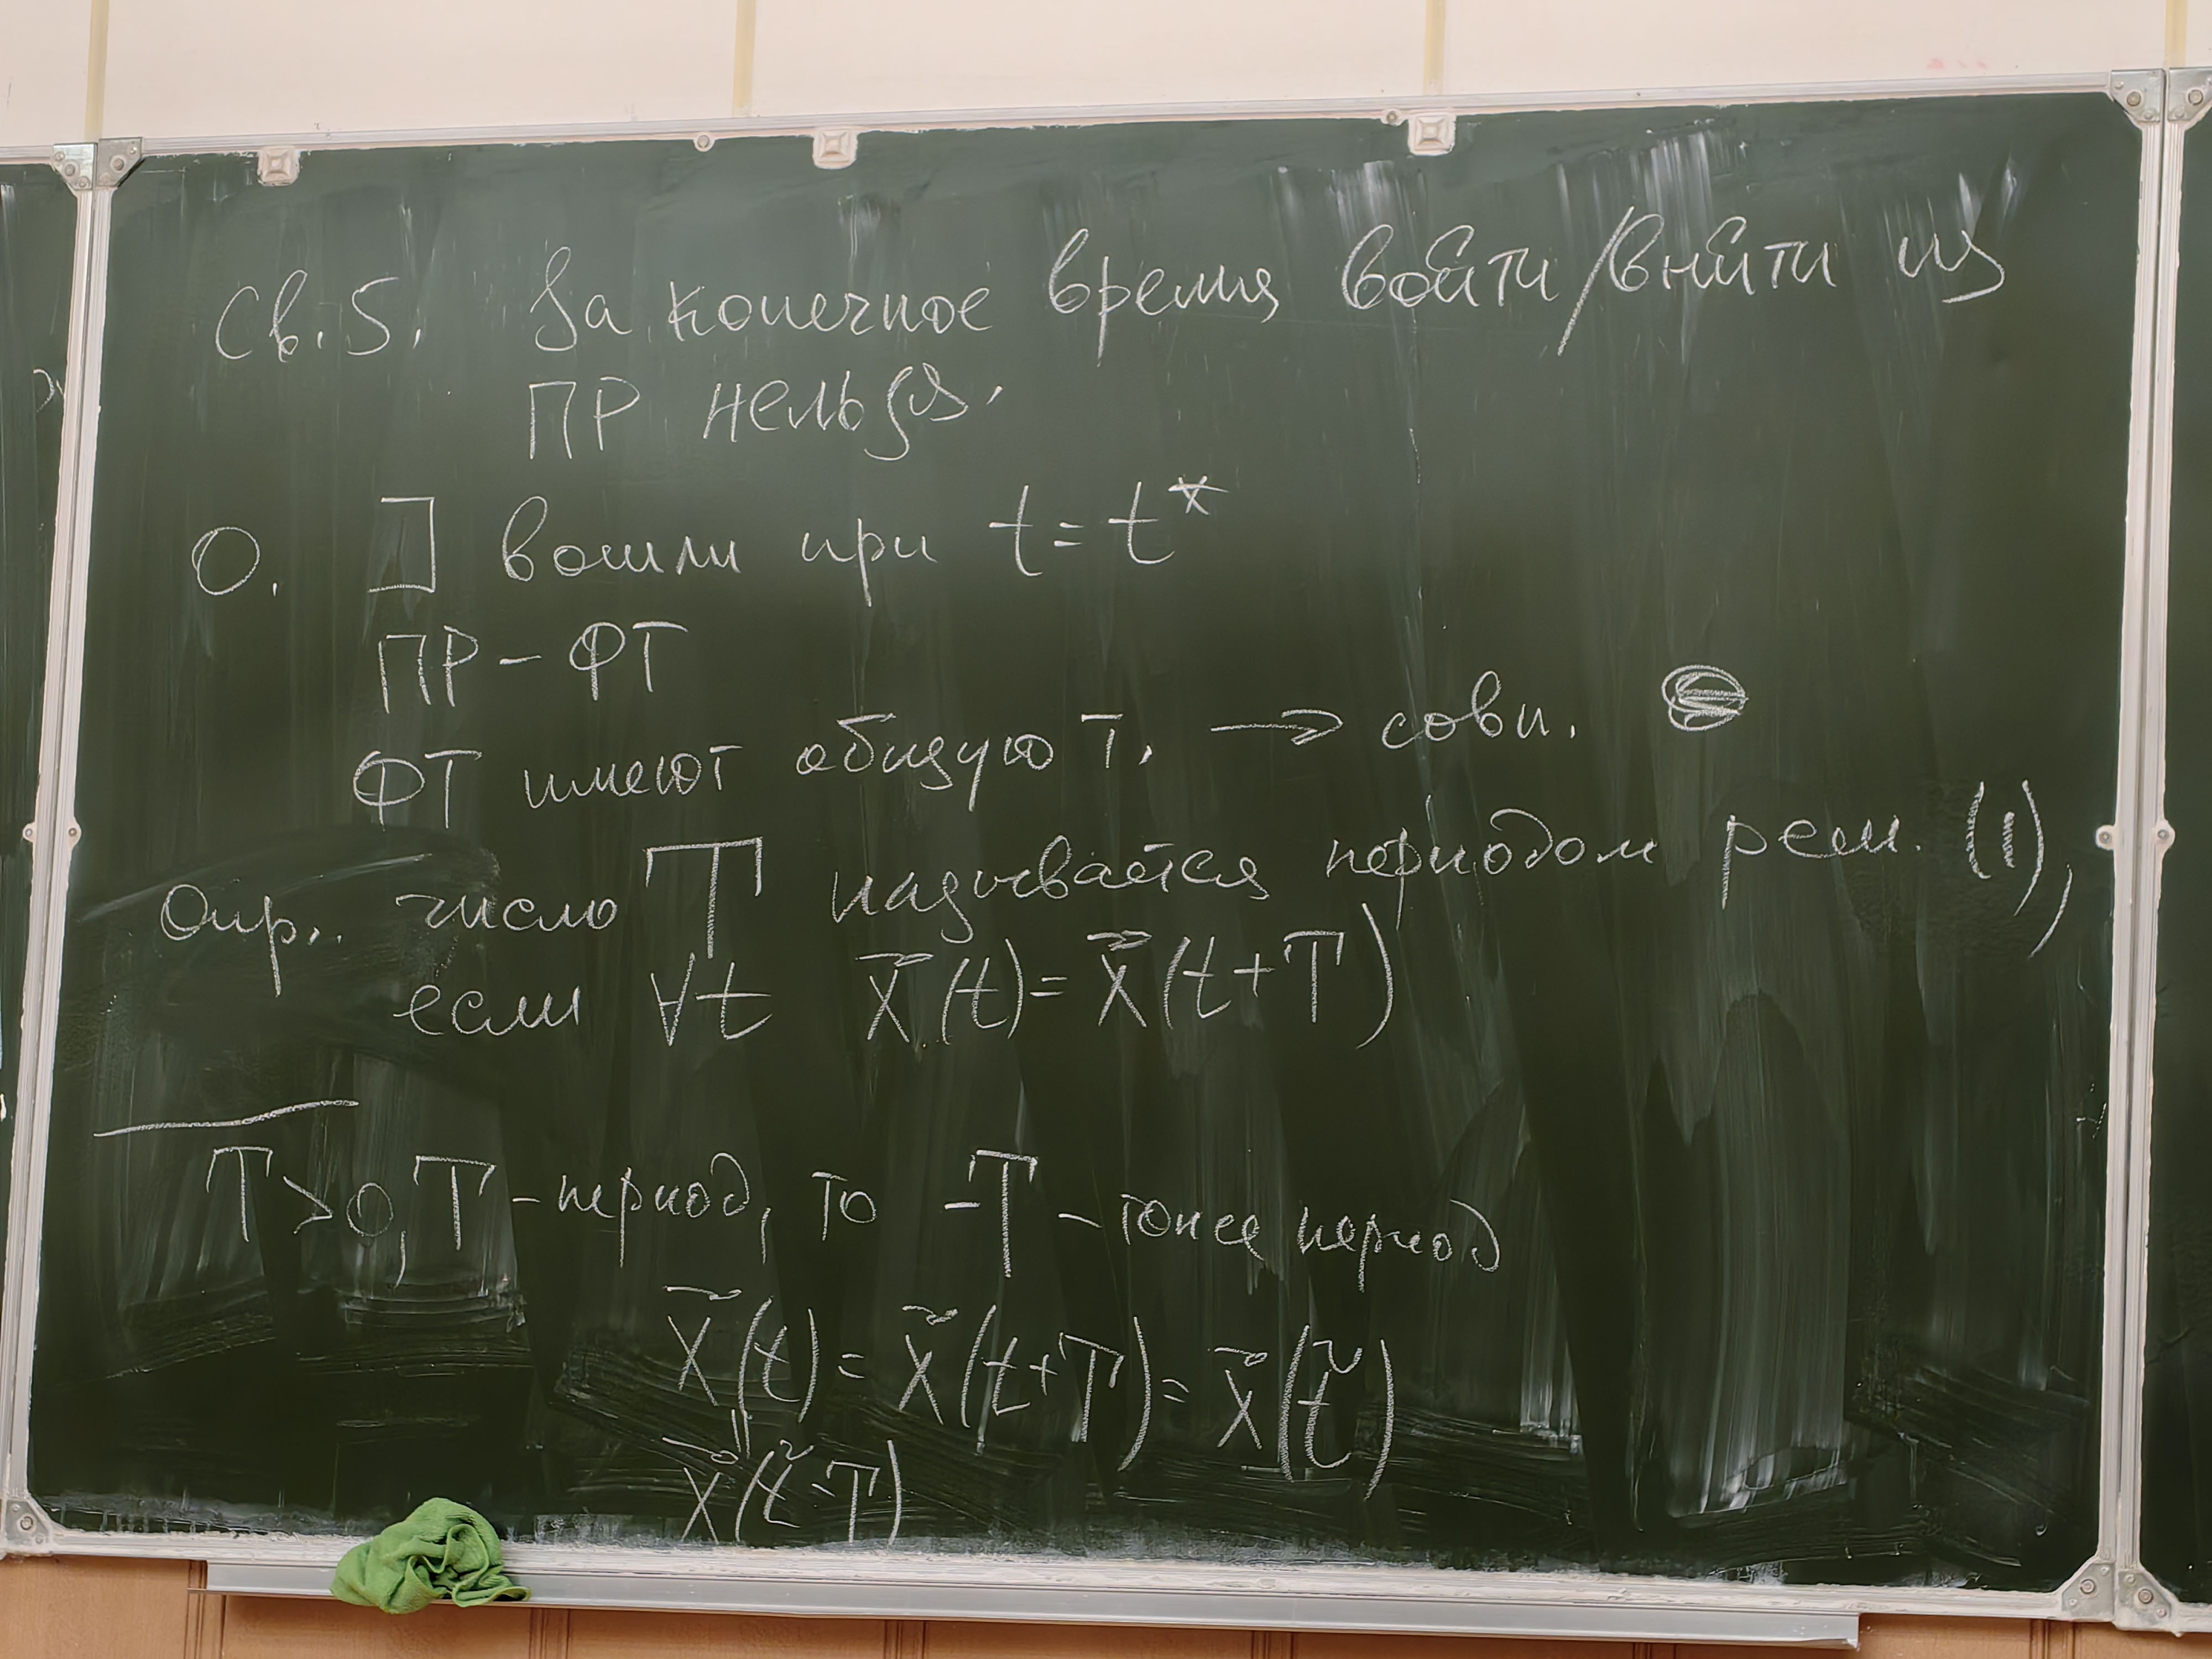 Св. 5. За конечное время войти/выйти из
ПР нельзя.
О. ] вошли при t = t*
ПР - ФТ
ФТ имеют общую т. → совп.
Опр.. число T называется периодом реш. (1),
если ∀t x⃗(t) = x⃗(t+T)
T > 0, T - период, то -T - тоже период
x⃗(t) = x⃗(t+T) = x⃗(t̃)
||
x⃗(t̃-T)